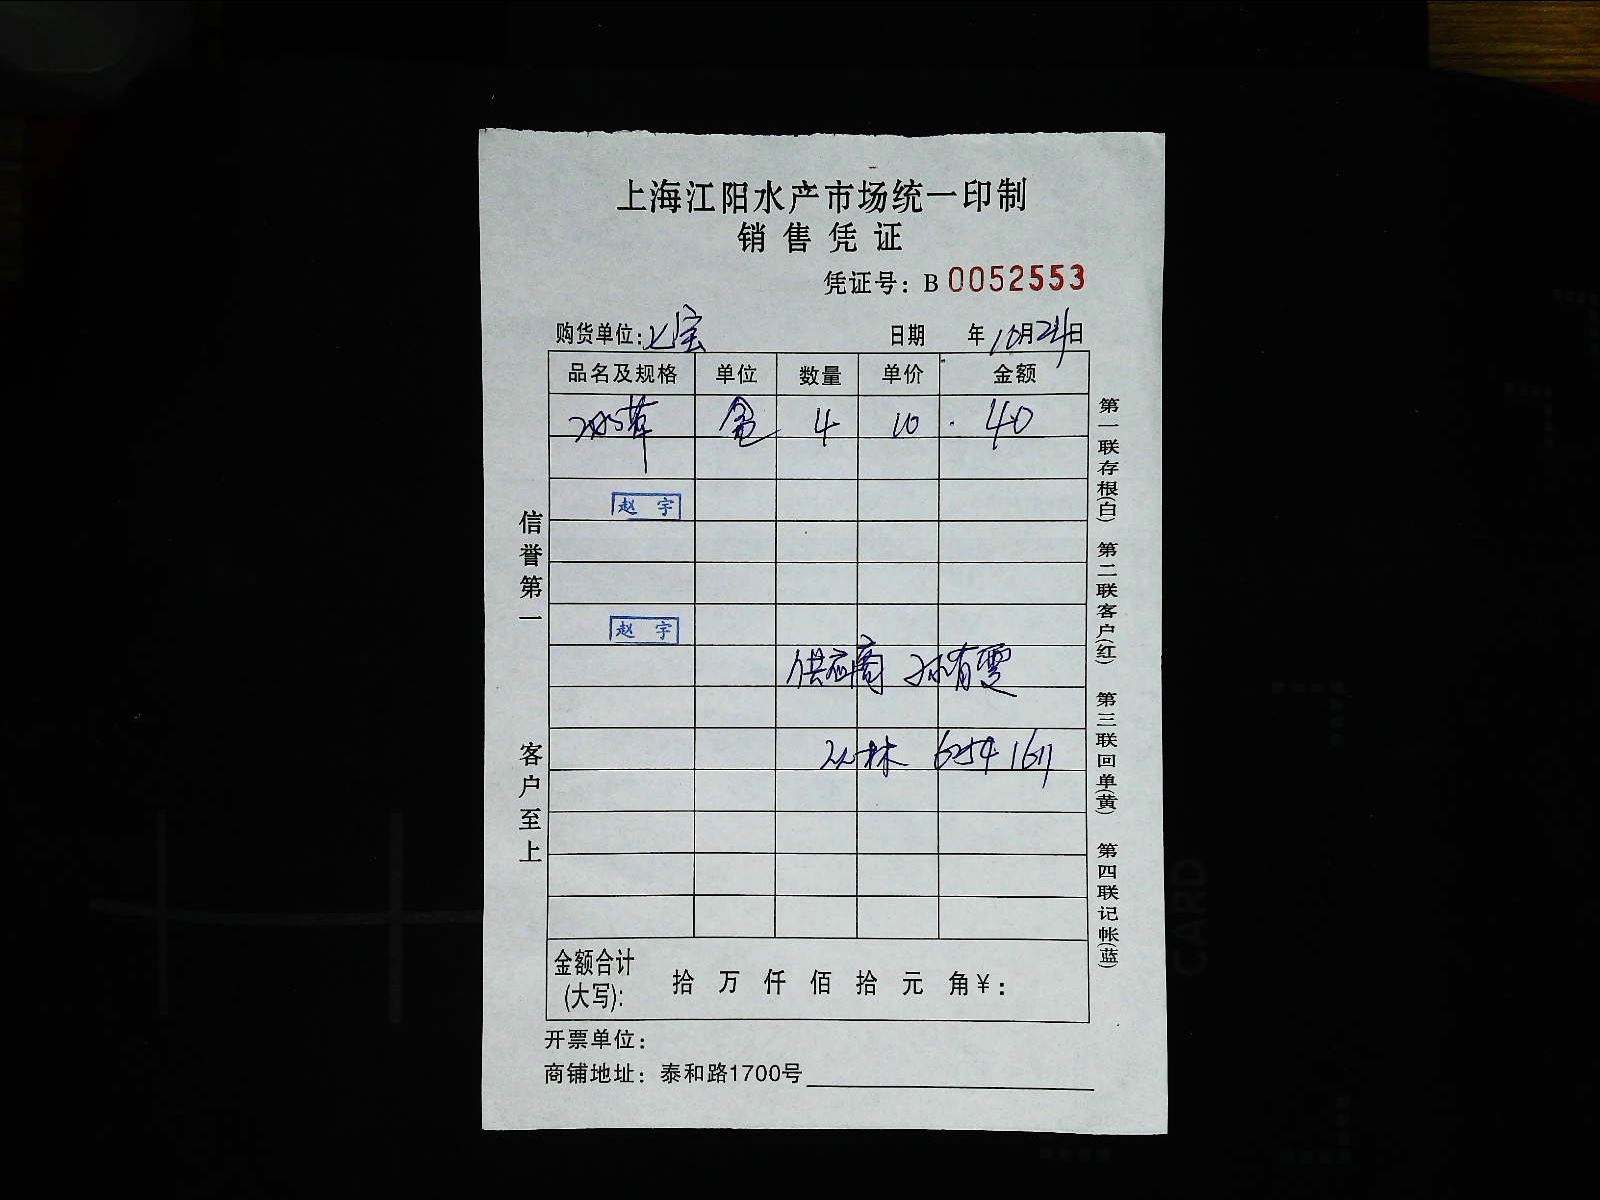 上海江阳水产市场统一印制
销售凭证
凭证号：B 0052553
购货单位：七宝 日期 年10月24日
品名及规格 单位 数量 单价 金额
盒 4 10 40
赵宇
赵宇
供应商 孙有雯
丛林 6254 1611
金额合计(大写)： 拾 万 仟 佰 拾 元 角 ¥：
开票单位：
商铺地址：泰和路1700号
信誉第一
客户至上
第一联存根(白)
第二联客户(红)
第三联回单(黄)
第四联记帐(蓝)